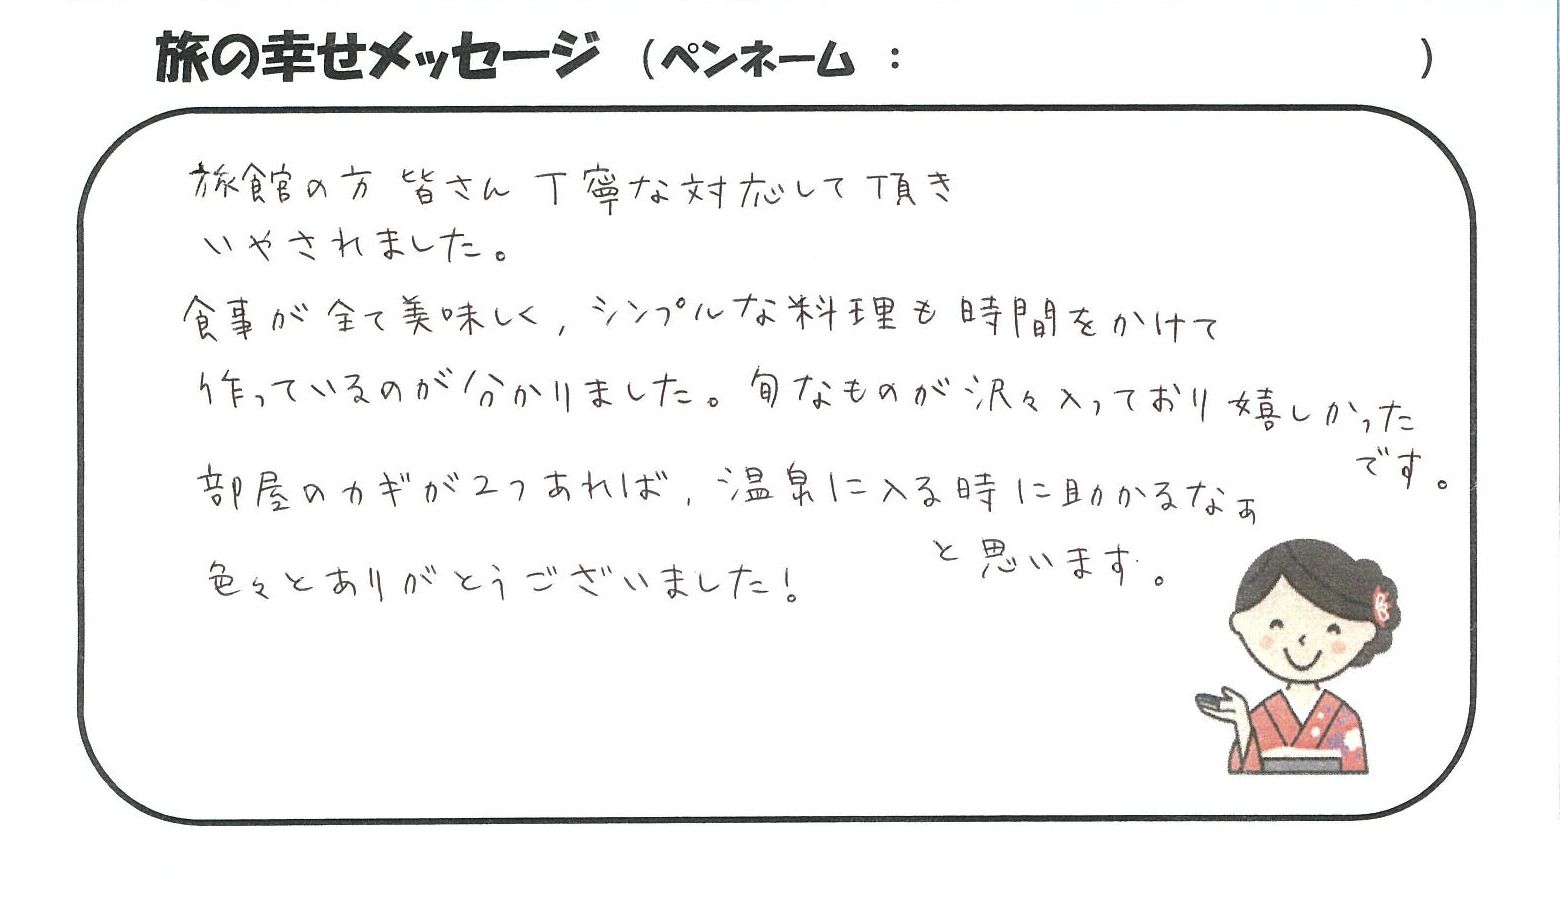 旅の幸せメッセージ (ペンネーム : )
旅館の方 皆さん 丁寧な対応して頂き
いやされました。
食事が全て美味しく, シンプルな料理も時間をかけて
作っているのが分かりました。旬なものが沢々入っており嬉しかった
です。
部屋のカギが2つあれば, 温泉に入る時に助かるなぁ
と思います。
色々とありがとうございました!